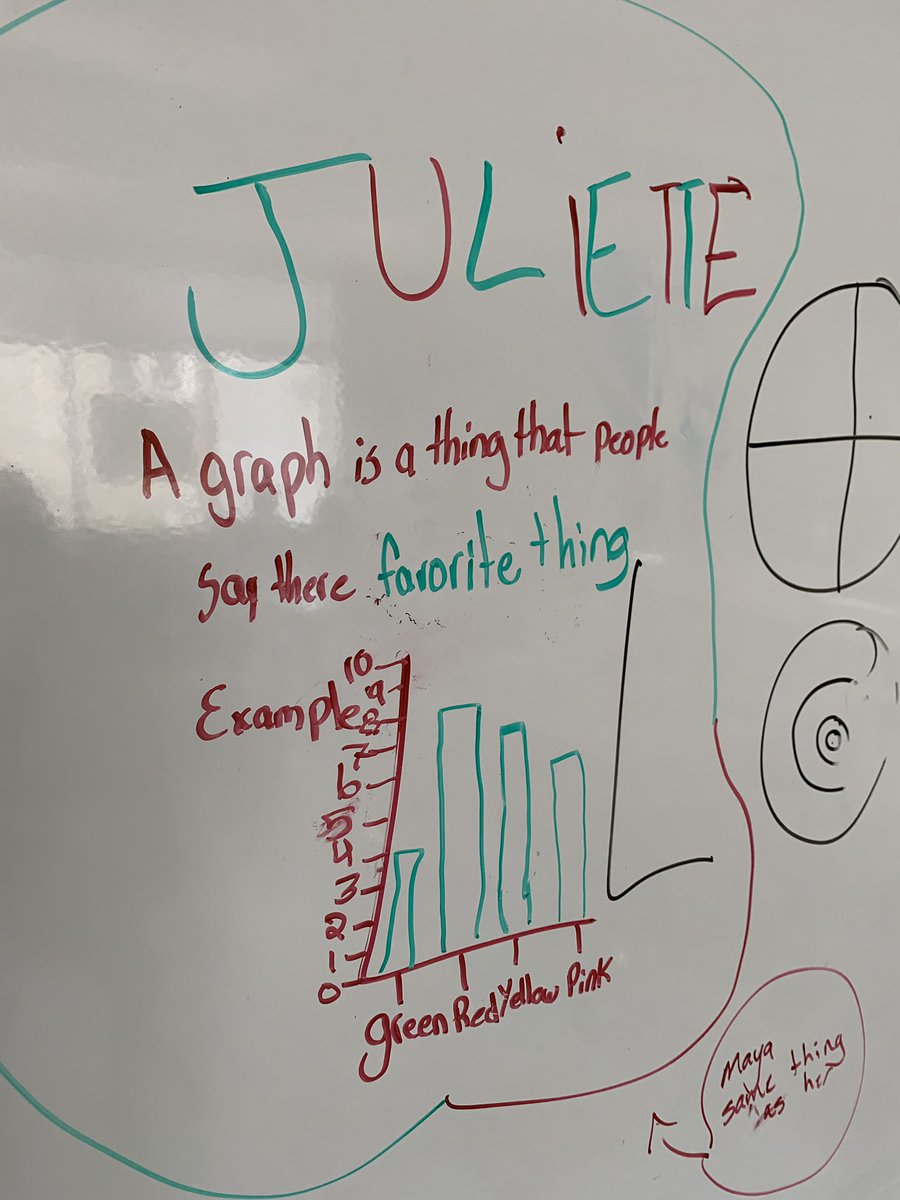 JULiETTE
A graph is a thing that people
say there favorite thing
Example
10
9
8
7
6
5
4
3
2
1
0
green Red Yellow Pink
Maya
same thing
as her